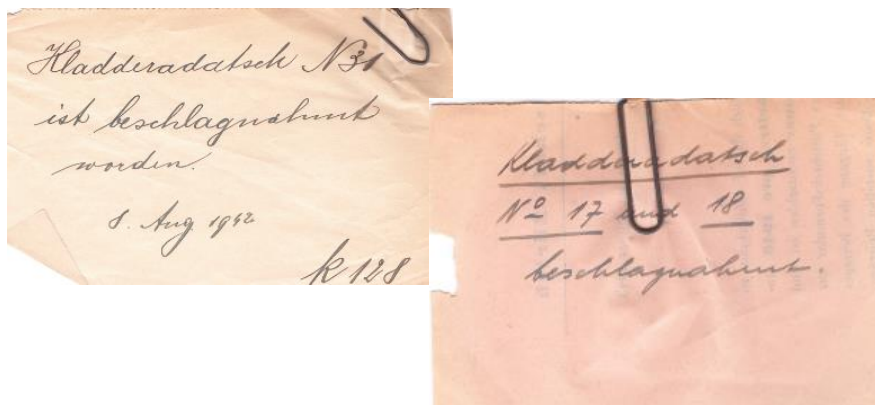 Kladderadatsch N 31
ist beschlagnahmt
worden.
8. Aug 1942
K 128
Kladderadatsch
Nº 17 und 18
beschlagnahmt.